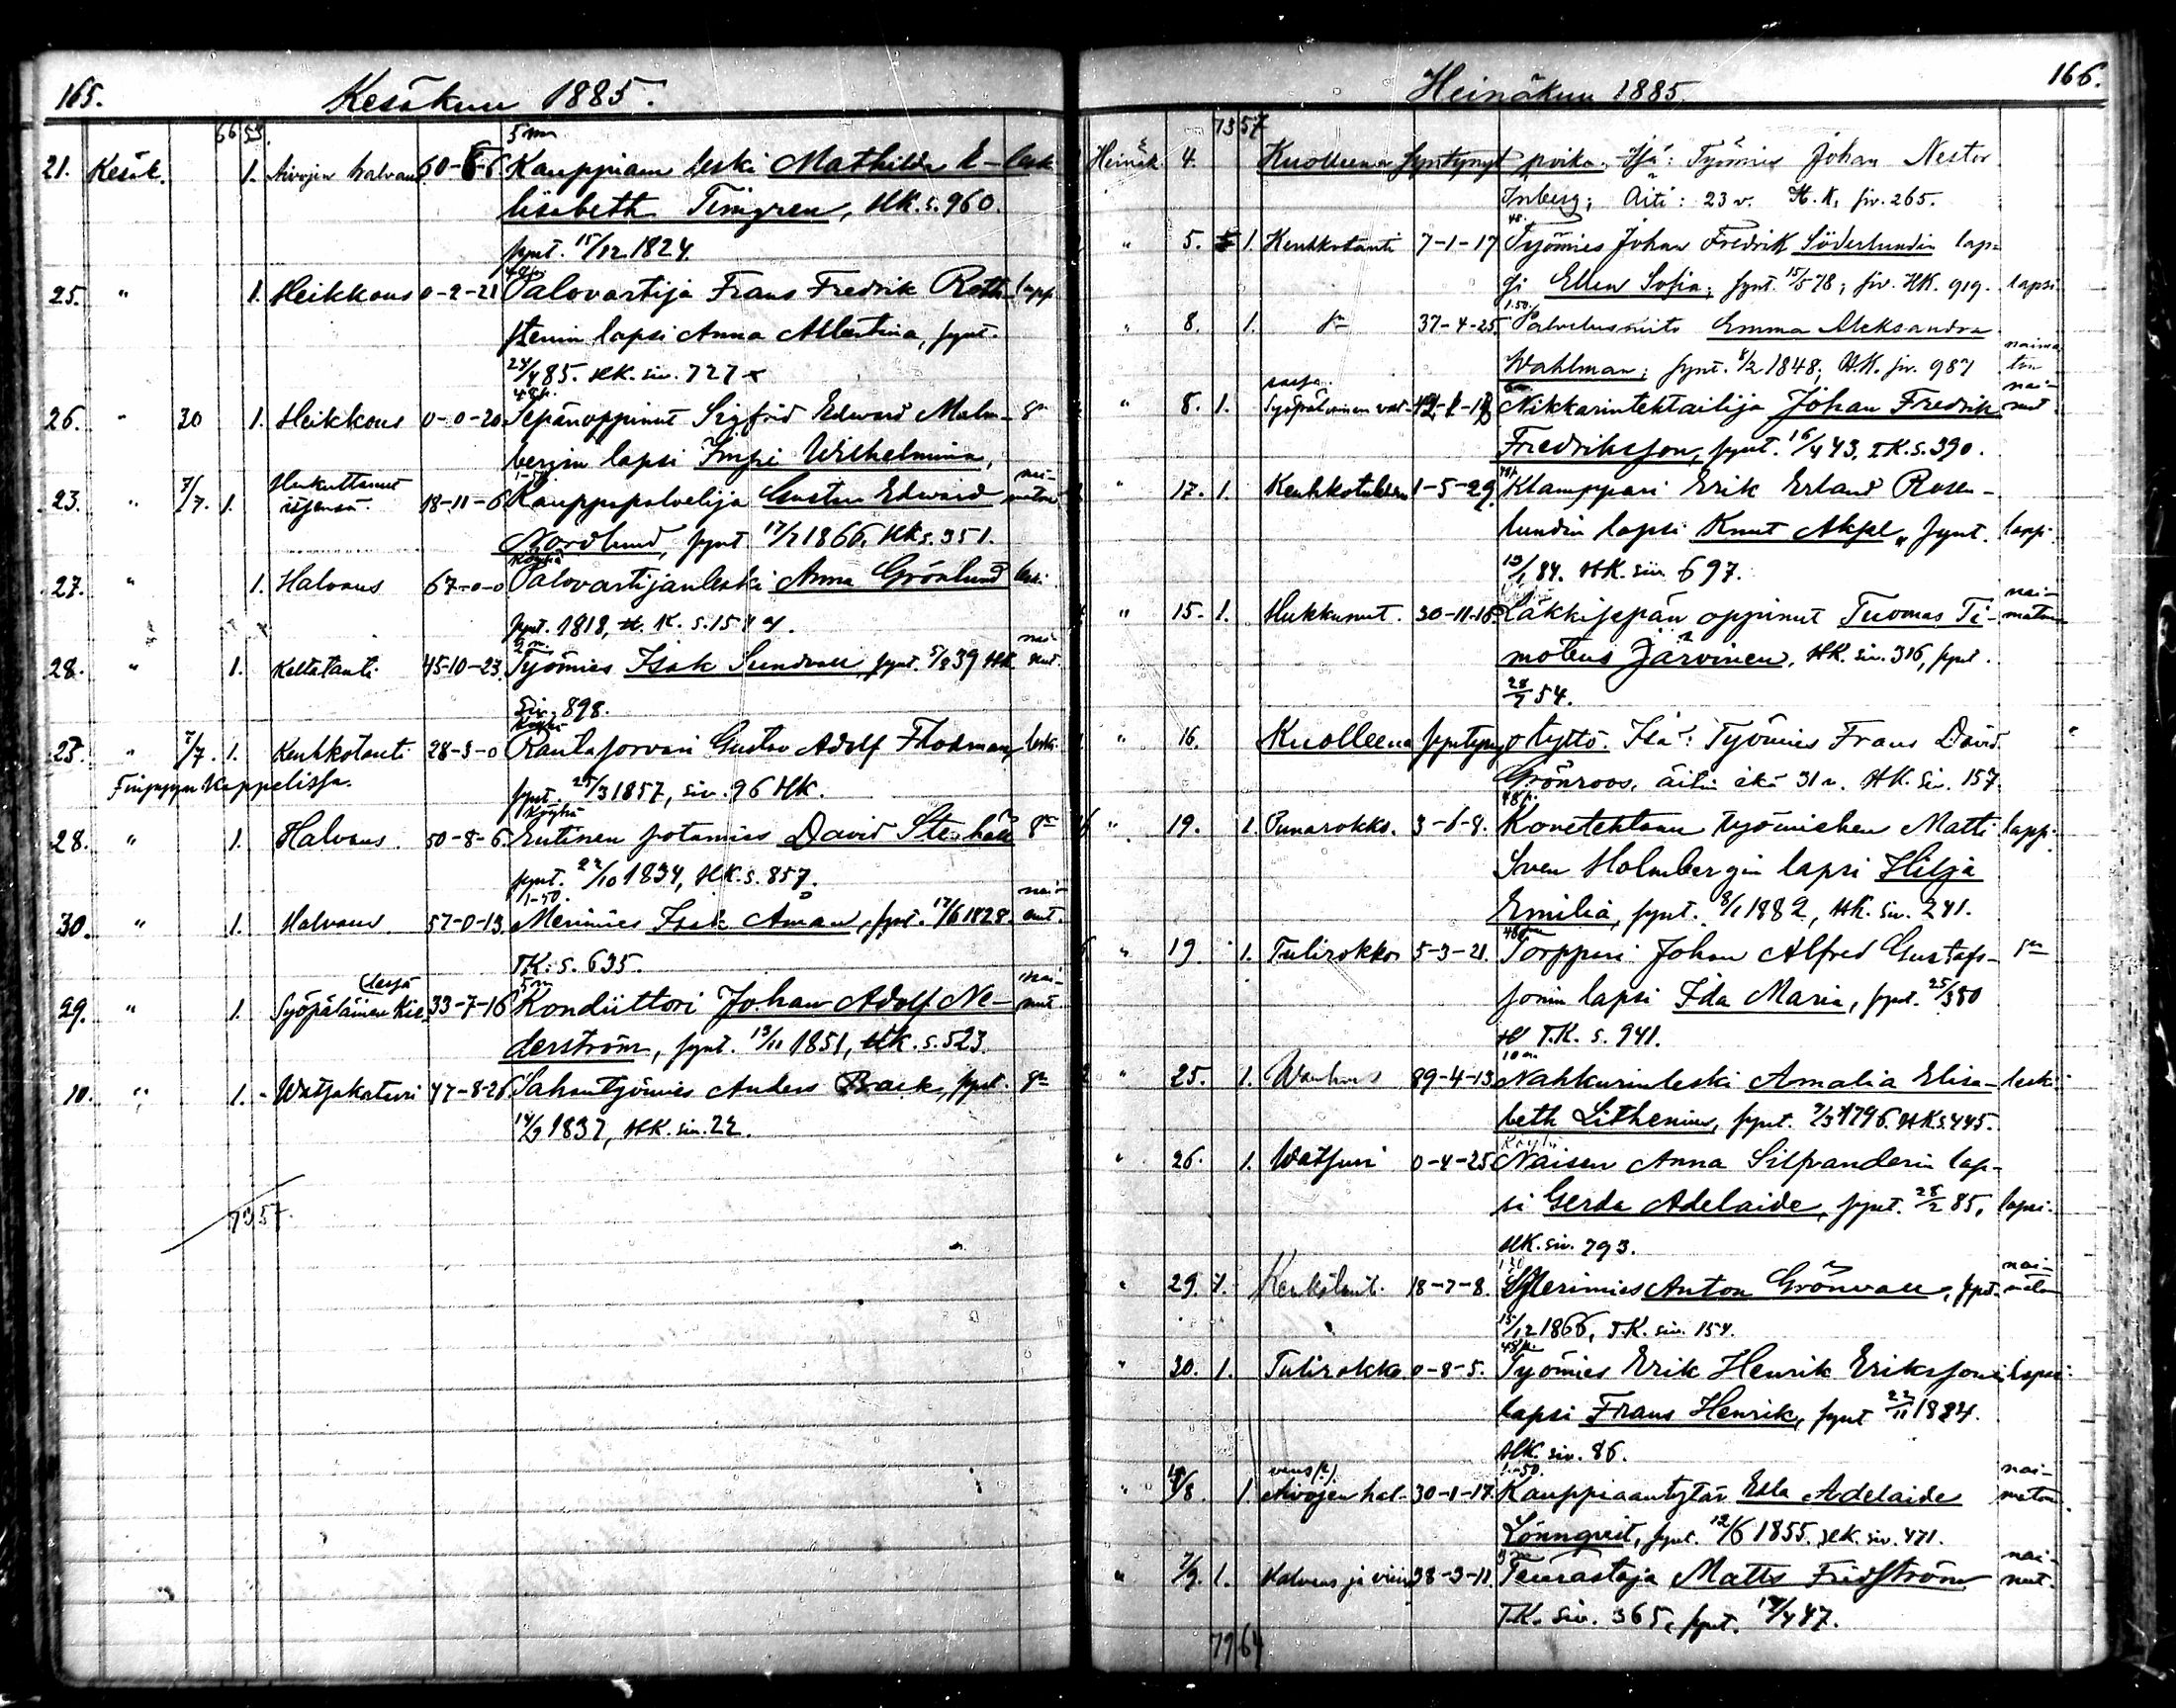 165.
Kesäkuu 1885.
66 53.
5 m
21. Kesäk. 1. Aivojen halvaus 60-6-6 Kauppiaan leski Mathilda E- leski
lisabeth Timgren, HK. s. 960.
synt. 15/12 1824.
25. " 1. Heikkous 0-2-21 Palovartija Frans Fredrik Roth- lapsi
stenin lapsi Anna Albertina, synt.
24/4 85. HK. siv. 727
48 p.
26. " 30 1. Heikkous 0-0-20 Sepänoppinut Sigfrid Edward Malm-
bergin lapsi Impi Wilhelmina,
1-50 nai-
23. " 7/7. 1. Hukuttanut itsensä. 18-11-6 Kauppapalvelija Gustav Edward maton
Nordlund, synt. 17/7 1866, HK s. 351.
Köyhä
27. " 1. Halvaus 67-0-0 Palovartijanleski Anna Grönlund leski
synt. 1818, H. K. s. 15
nai-
28. " 1. Keltatauti 45-10-23. Työmies Isak Sundvall, synt. 5/8 39 HK nut.
Siv. 898.
Köyhä
25. " 7/7. 1. Keuhkotauti 28-3-0 Rautasorvari Gustav Adolf Flodman, leski
Finpyyn Kappelissa.
synt. 25/3 1857, siv. 96 HK.
Köyhä
28. " 1. Halvaus. 50-8-6. Entinen sotamies David Stenhäll
synt. 22/10 1834, HK. s. 857.
1-50. nai-
30. " 1. Halvaus 57-0-13. Merimies Isak Åman, synt. 17/6 1828. nut.
TK: s. 635.
5 m nai-
29. " 1. Syöpäläinen kielessä 33-7-16 Kondiittori Johan Adolf Ne- nut.
derström, synt. 13/11 1851, HK. s. 523.
10. " 1. Watsakatari 47-8-26 Sahantyömies Anders Back, synt.
14/9 1837, HK. siv. 22.
73 57.
166.
Heinäkuu 1885.
73 57
Heinäk. 4. Kuolleena syntynyt poika. Isä: Työmies Johan Nestor
Inberg; Äiti: 23 v. H. K. siv. 265.
48.
" 5. 1. Keuhkotauti 7-1-17 Työmies Johan Fredrik Söderlundin lap-
si Ellen Sofia; synt. 15/5 78; siv. HK. 919. lapsi.
1.50.
" 8. 1. 37-4-25. Palvelusneito Emma Aleksandra
Wahlman; synt. 8/2 1848; HK. siv. 987 naima ton
nai-
" 8. 1. Syöpäläinen vat- sassa. Nikkarintehtailija Johan Fredrik nut
Fredriksson, synt. 16/4 43. T.K. s. 390.
48 p.
" 17. 1. Keuhkotulehdus 1-5-29. Klamppari Erik Erland Rosen-
lundin lapsi Knut Aksel, synt. lapsi
19/1 84. HK. siv. 697.
nai-
" 15. 1. Hukkunut. 30-11-16 Läkkisepän oppinut Tuomas Ti- maton
moteus Järvinen, HK. siv. 316, synt.
28/7 54.
" 16. Kuolleena syntynyt tyttö. Isä: Työmies Frans David
Grönroos, äitin ikä 31 v. HK. Siv. 157.
48 p.
" 19. 1. Punarokko. 3-6-8. Konetehtaan työmiehen Matti lapsi.
Sven Holmbergin lapsi Hilja
Emilia, synt. 8/1 1882, HK. siv. 241.
" 19. 1. Tulirokko 5-3-21. Torppari Johan Alfred Gustafs-
sonin lapsi Ida Maria, synt. 25/3 80
T.K. s. 941.
10 m.
" 25. 1. Wanhuus 89-4-13 Nahkurinleski Amalia Elisa- leski
beth Lithenius, synt. 9/3 1796. HK s. 445.
Köyhä
" 26. 1. Watsuri 0-4-25 Naisen Anna Silfvanderin lap-
si Gerda Adelaide, synt. 28/2 85, lapsi.
HK. siv. 793.
1.50 nai-
" 29. 1. Keuhkotauti 18-7-8. Merimies Anton Grönvall, synt. maton
15/12 1866, T.K. siv. 154.
48 p.
" 30. 1. Tulirokko 0-8-5. Työmies Erik Henrik Erikssonin lapsi
lapsi Frans Henrik, synt 22/11 1884.
HK. siv. 86.
vaus (?) 1-50. nai-
" 1. Aivojen hal- 30-1-17. Kauppiaantytär Ella Adelaide maton.
Lönnqvist, synt. 12/6 1855. HK. siv. 471.
nai-
" 7/9. 1. Halvaus ja viini 38-3-11. Teurastaja Matts Fridström nut.
T.K. Siv. 365, synt. 19/4 47.
79 64